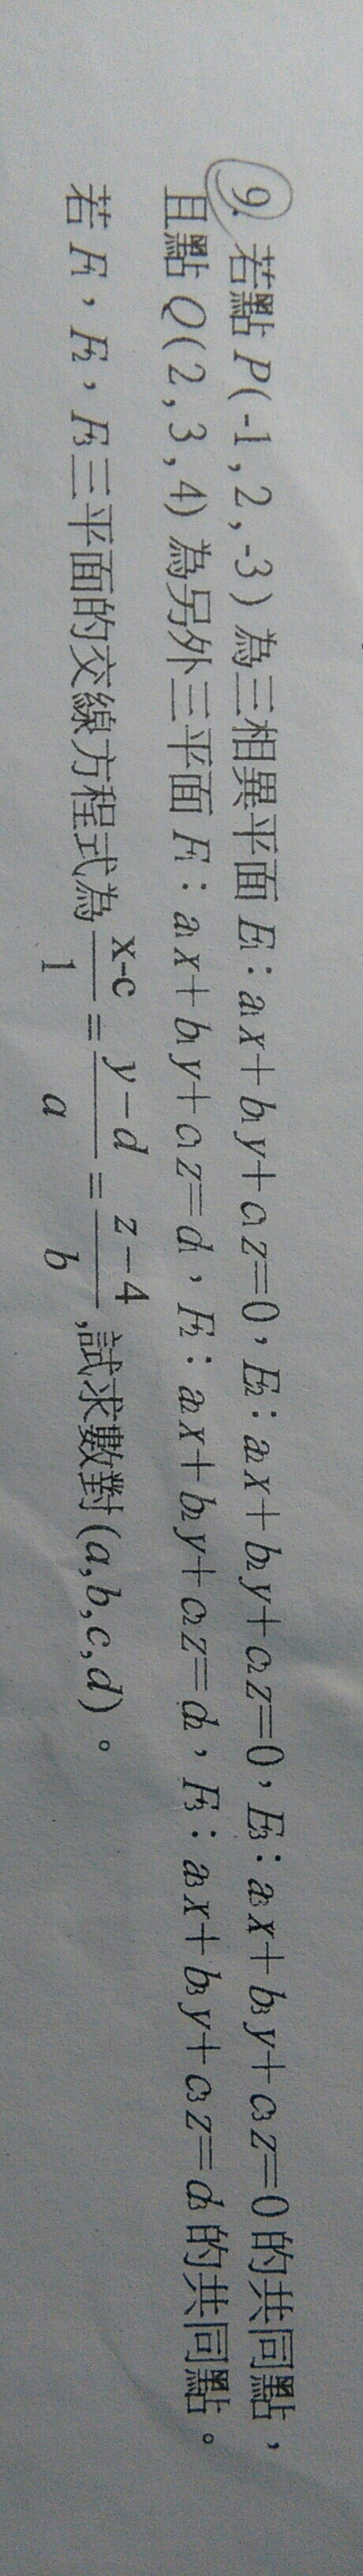 9. 若點 P(-1,2,-3) 為三相異平面 E₁：a₁x+b₁y+c₁z=0，E₂：a₂x+b₂y+c₂z=0，E₃：a₃x+b₃y+c₃z=0 的共同點，
且點 Q(2,3,4) 為另外三平面 F₁：a₁x+b₁y+c₁z=d₁，F₂：a₂x+b₂y+c₂z=d₂，F₃：a₃x+b₃y+c₃z=d₃ 的共同點。
若 F₁，F₂，F₃三平面的交線方程式為 (x-c)/1 = (y-d)/a = (z-4)/b ,試求數對(a,b,c,d)。